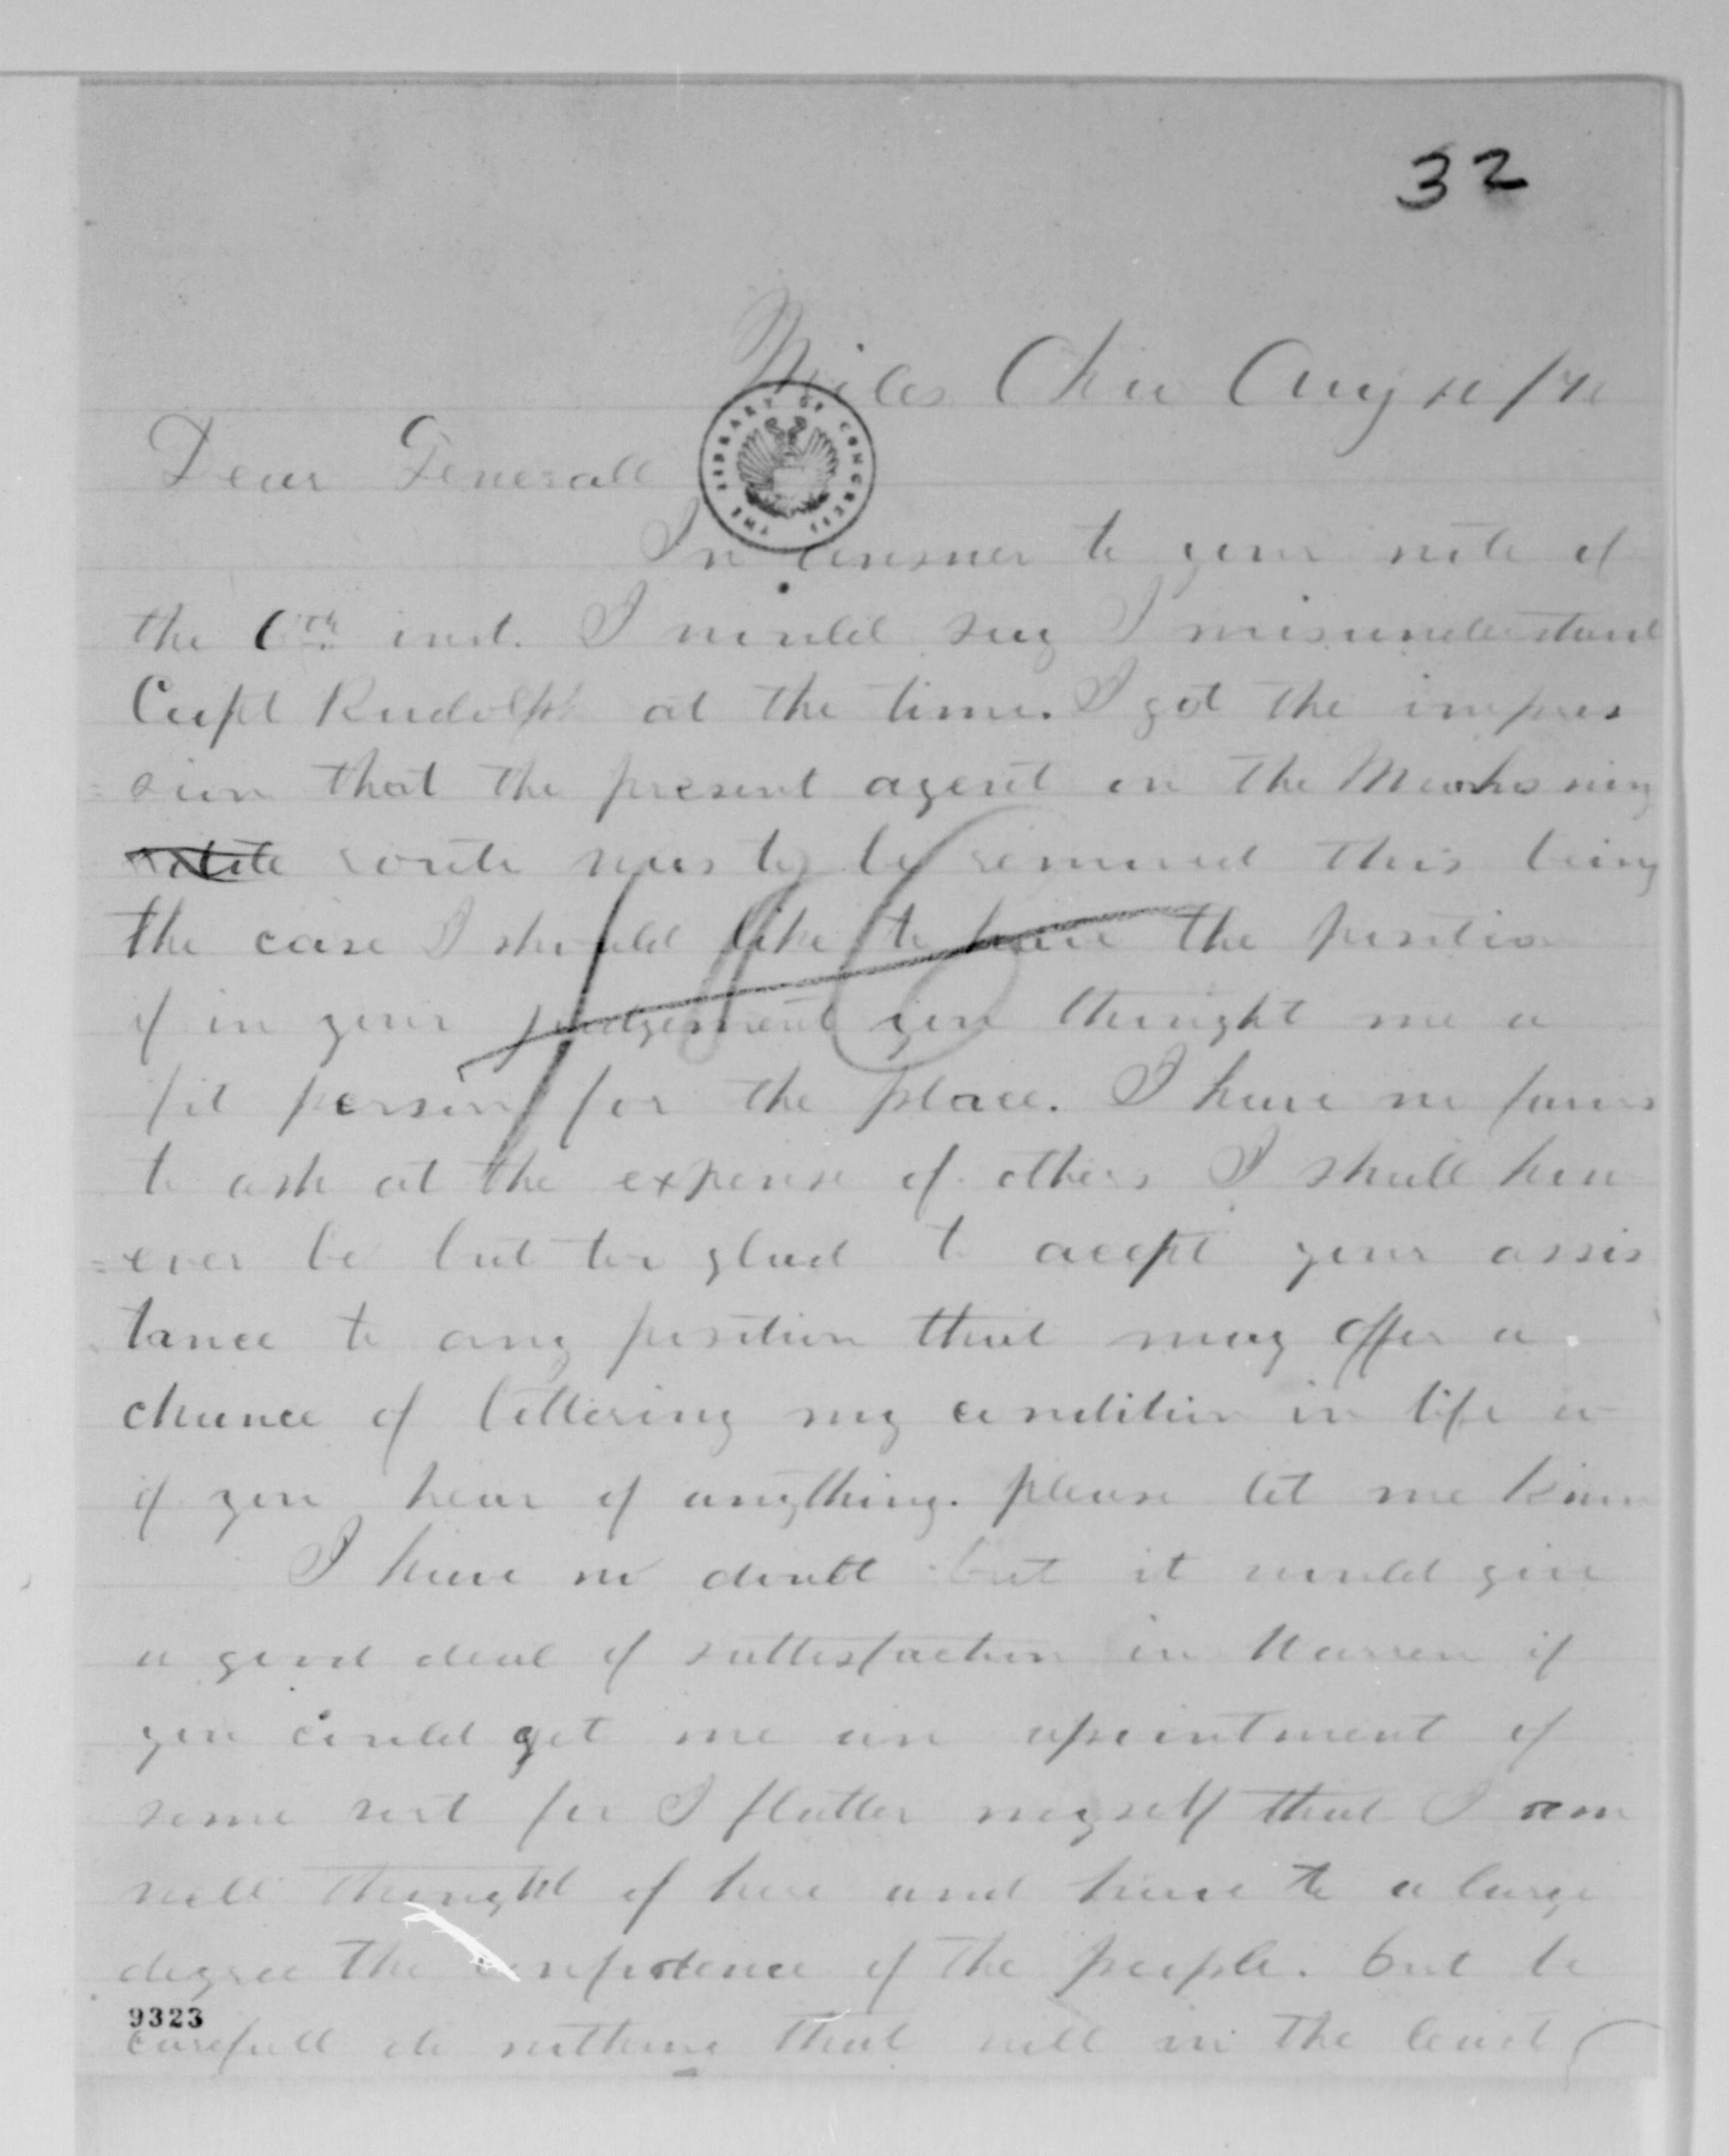 32
Niles Ohio Aug
Dear Generall
THE LIBRARY OF CONGRESS
In answer to your note of
the 6th inst. I would say I misunderstand
Capt Rudolph at the time. I got the impres
=sion that the present agent on the Mahoning
route was to be removed this being
the case I should like to have the position
if in your judgement you thought me a
fit person for the place. I have no favors
to ask at the expense of others I shall how
=ever be but too glad to acept your assis
tance to any position that may offer a
chance of bettering my condition in life
if you hear of anything. please let me know
I have no doubt but it would give
a good deal of sattisfaction in Warren if
you could get me an apointment of
some sort for I flatter myself that I am
well thought of here and have to a large
degree the confidence of the people. but be
9323
carefull do nothing that will in the least